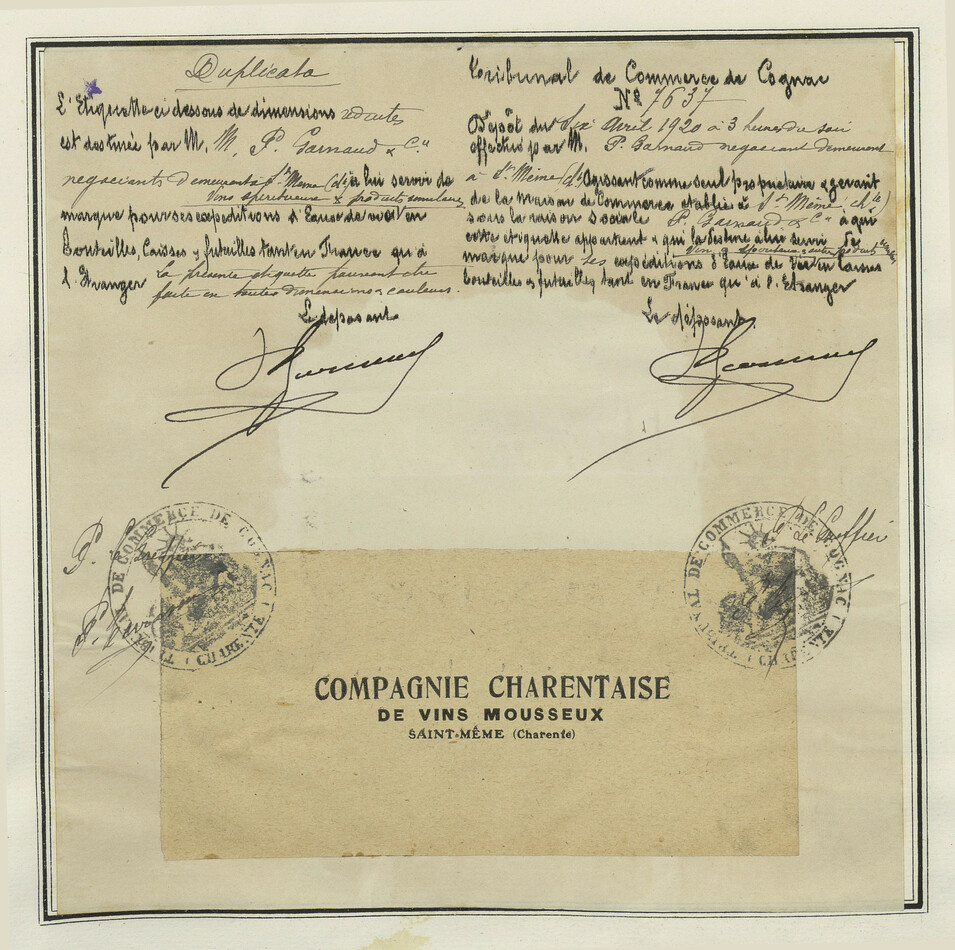 Duplicata
L'Etiquette ci dessous de dimensions réduites
est destinée par M. M. P. Garnaud & Cie
negociants demeurant à St Meme (Cte) à lui servir de
vins spiritueux & products similaires
marque pour ses expeditions d'Eaux de vie en
Bouteilles, Caisses & futailles tant en France qu'à
l'Etranger la présente etiquette pouvant etre
faite en toutes dimensions & couleurs.
Le deposant
Tribunal de Commerce de Cognac
No 7637
Dépôt du Six Avril 1920 à 3 heures du soir
effectué par M. P. Garnaud negociant demeurant
à St Même (Cte) Agissant comme seul propriétaire & gerant
de la maison de Commerce etablie à St Même (Cte)
sous la raison sociale P. Garnaud & Cie à qui
cette etiquette appartient & qui la destine à lui servir de
vins & spiritueux & autres produits
marque pour ses expéditions d'Eaux de Vie en Caisses
bouteilles & futailles tant en France qu'à l'Etranger
Le déposant.
P. le Greffier
TRIBUNAL DE COMMERCE DE COGNAC (CHARENTE)
Le Greffier
TRIBUNAL DE COMMERCE DE COGNAC (CHARENTE)
COMPAGNIE CHARENTAISE
DE VINS MOUSSEUX
SAINT-MÊME (Charente)